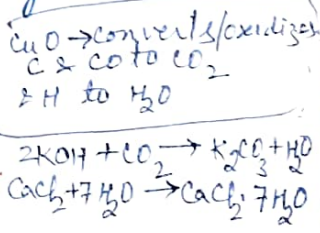 CuO → converts/oxidizes
C & CO to CO₂
& H to H₂O
2KOH + CO₂ → K₂CO₃ + H₂O
CaCl₂ + 7H₂O → CaCl₂·7H₂O